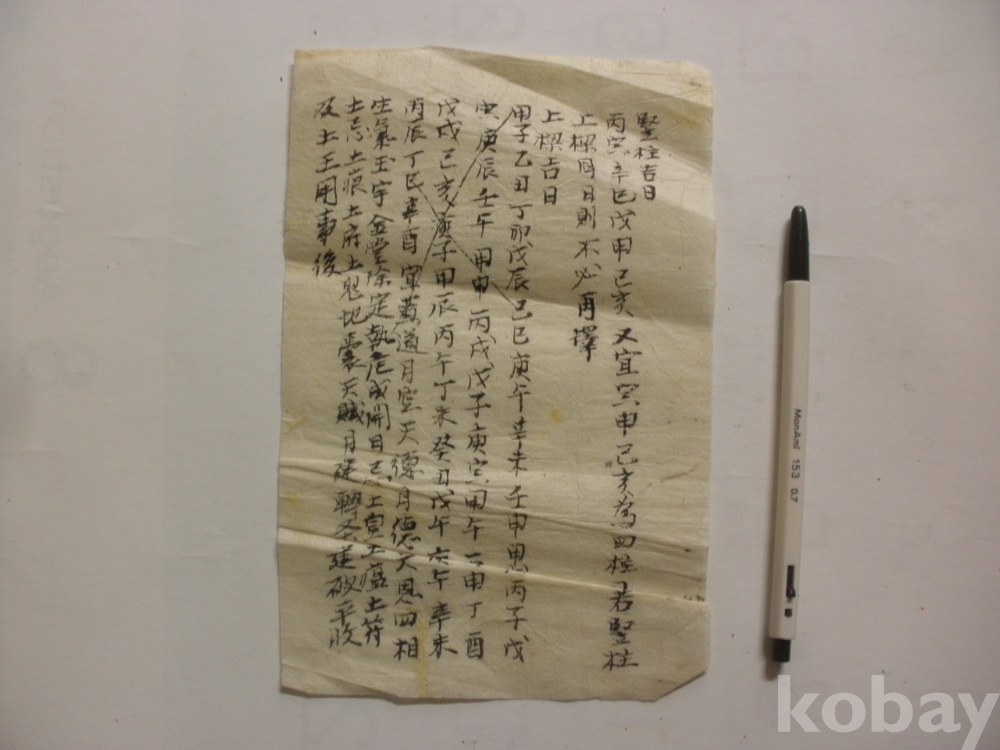 竪柱吉日
丙寅辛巳戊申己亥又宜寅申己亥為四柱若竪柱
上樑同日則不必再擇
上樑吉日
甲子乙丑丁卯戊辰己巳庚午辛未壬申甲戌丙子戊
寅庚辰壬午甲申丙戌戊子庚寅甲午 申丁酉
戊戌己亥庚子甲辰丙午丁未癸丑戊午 午辛未
丙辰丁巳辛酉宜黃道月空天德月德天恩四相
生氣玉宇金堂除定執危成開日忌土 土瘟土符
土忌土痕土府土鬼地囊天賊月建轉殺建破平收
及土王用事後
MonAmi 153 0.7
kobay